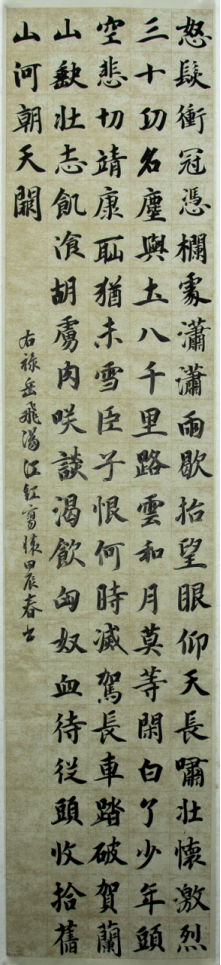 怒髮衝冠憑欄處瀟瀟雨歇抬望眼仰天長嘯壯懷激烈
三十功名塵與土八千里路雲和月莫等閑白了少年頭
空悲切靖康恥猶未雪臣子恨何時滅駕長車踏破賀蘭
山缺壯志飢湌胡虜肉咲談渴飲匈奴血待從頭收拾舊
山河朝天闕
右祿岳飛滿江紅寫懷甲辰春书